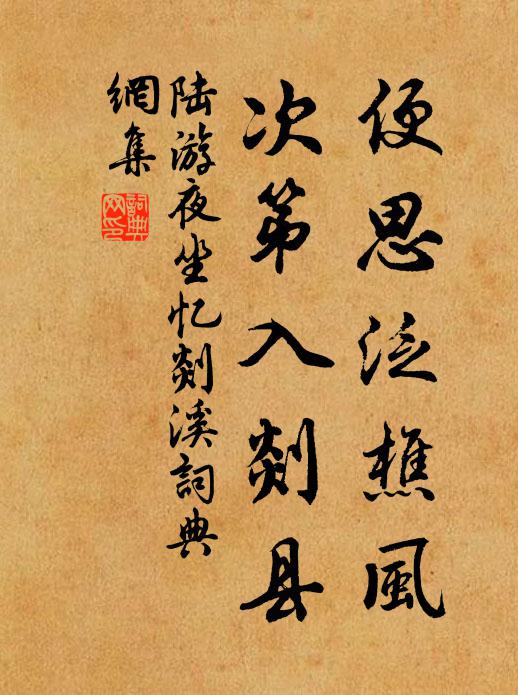 便思泛樵風
次第入剡县
陆游夜坐忆剡溪詞典
網集
詞典網印